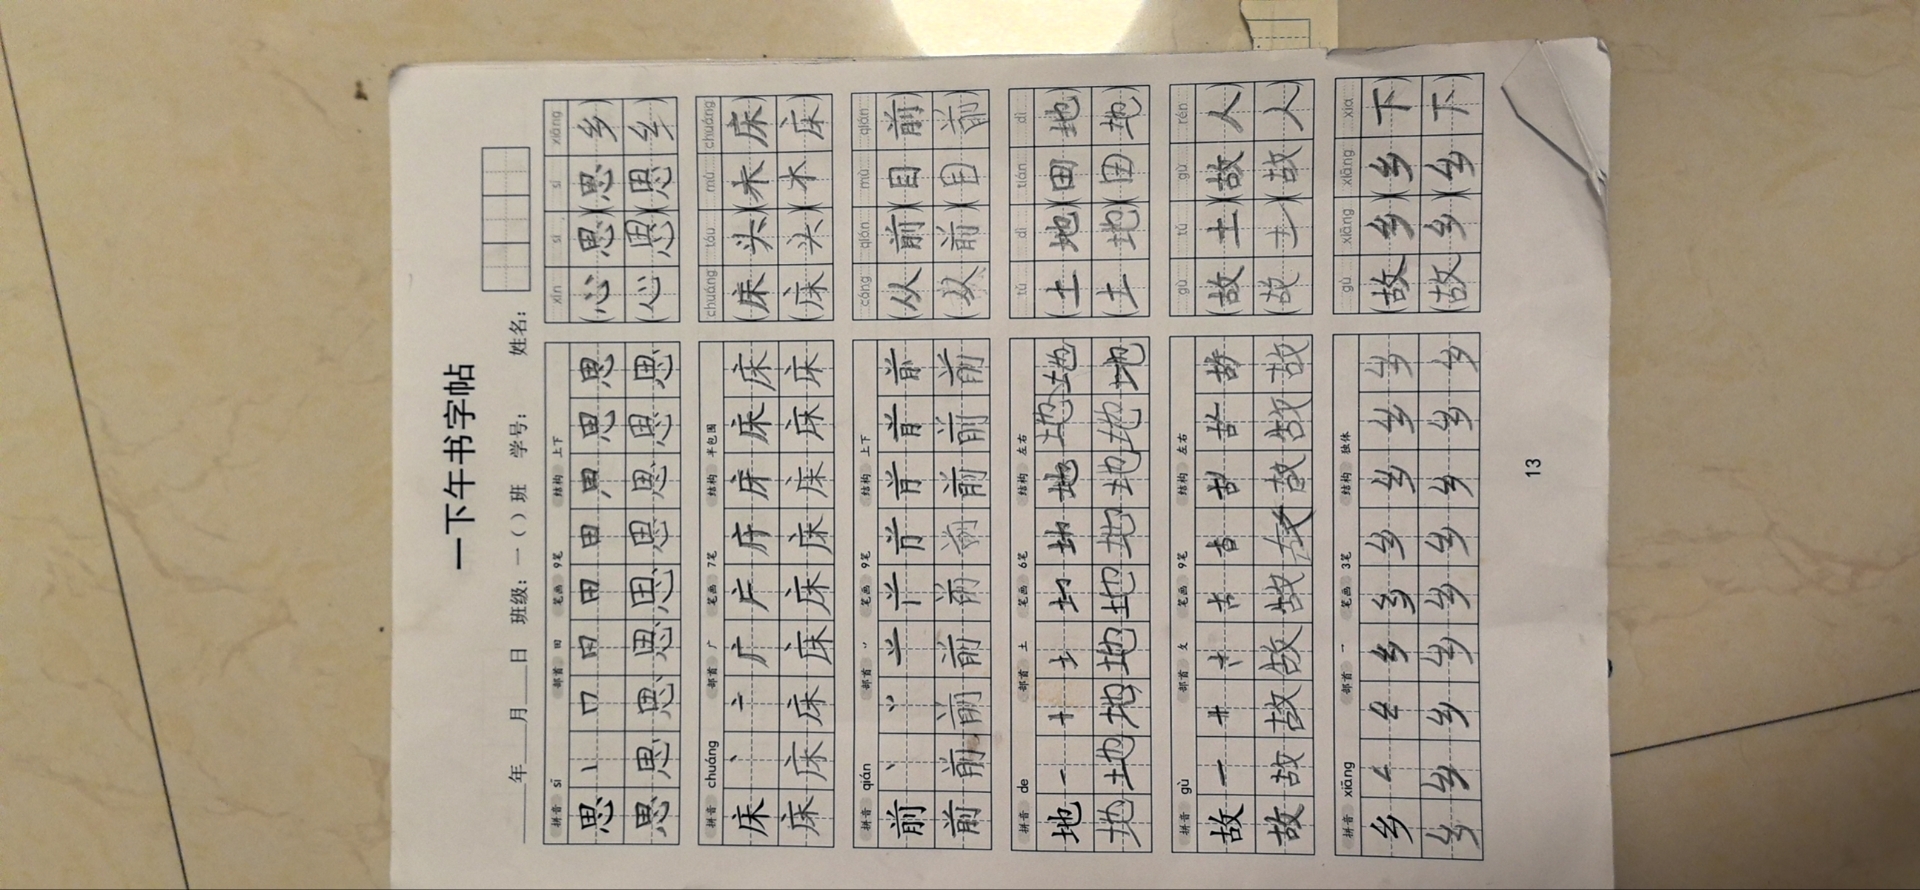 一下午书字帖
年 月 日 班级：一（ ）班 学号： 姓名：
拼音 sī 部首 田 笔画 9笔 结构 上下
思
思思思思思思思思思
xīn sī sī xiāng
（心思）（思乡）
（心思）（思乡）
拼音 chuáng 部首 广 笔画 7笔 结构 半包围
床丶亠广庁床床床
床床床床床床床床床
chuáng tóu mù chuáng
（床头）（木床）
（床头）（木床）
拼音 qián 部首 丷 笔画 9笔 结构 上下
前
前前前前前前前前前
cóng qián mù qián
（从前）（目前）
（从前）（目前）
拼音 de 部首 土 笔画 6笔 结构 左右
地一十土地地地
地地地地地地地地地
tǔ dì tián dì
（土地）（田地）
（土地）（田地）
拼音 gù 部首 攵 笔画 9笔 结构 左右
故一十古故
故故故故故故故故故
gù tǔ gù rén
（故土）（故人）
（故土）（故人）
拼音 xiāng 部首 乛 笔画 3笔 结构 独体
乡乡乡乡乡乡乡
乡乡乡乡乡乡乡乡乡
gù xiāng xiāng xià
（故乡）（乡下）
（故乡）（乡下）
13